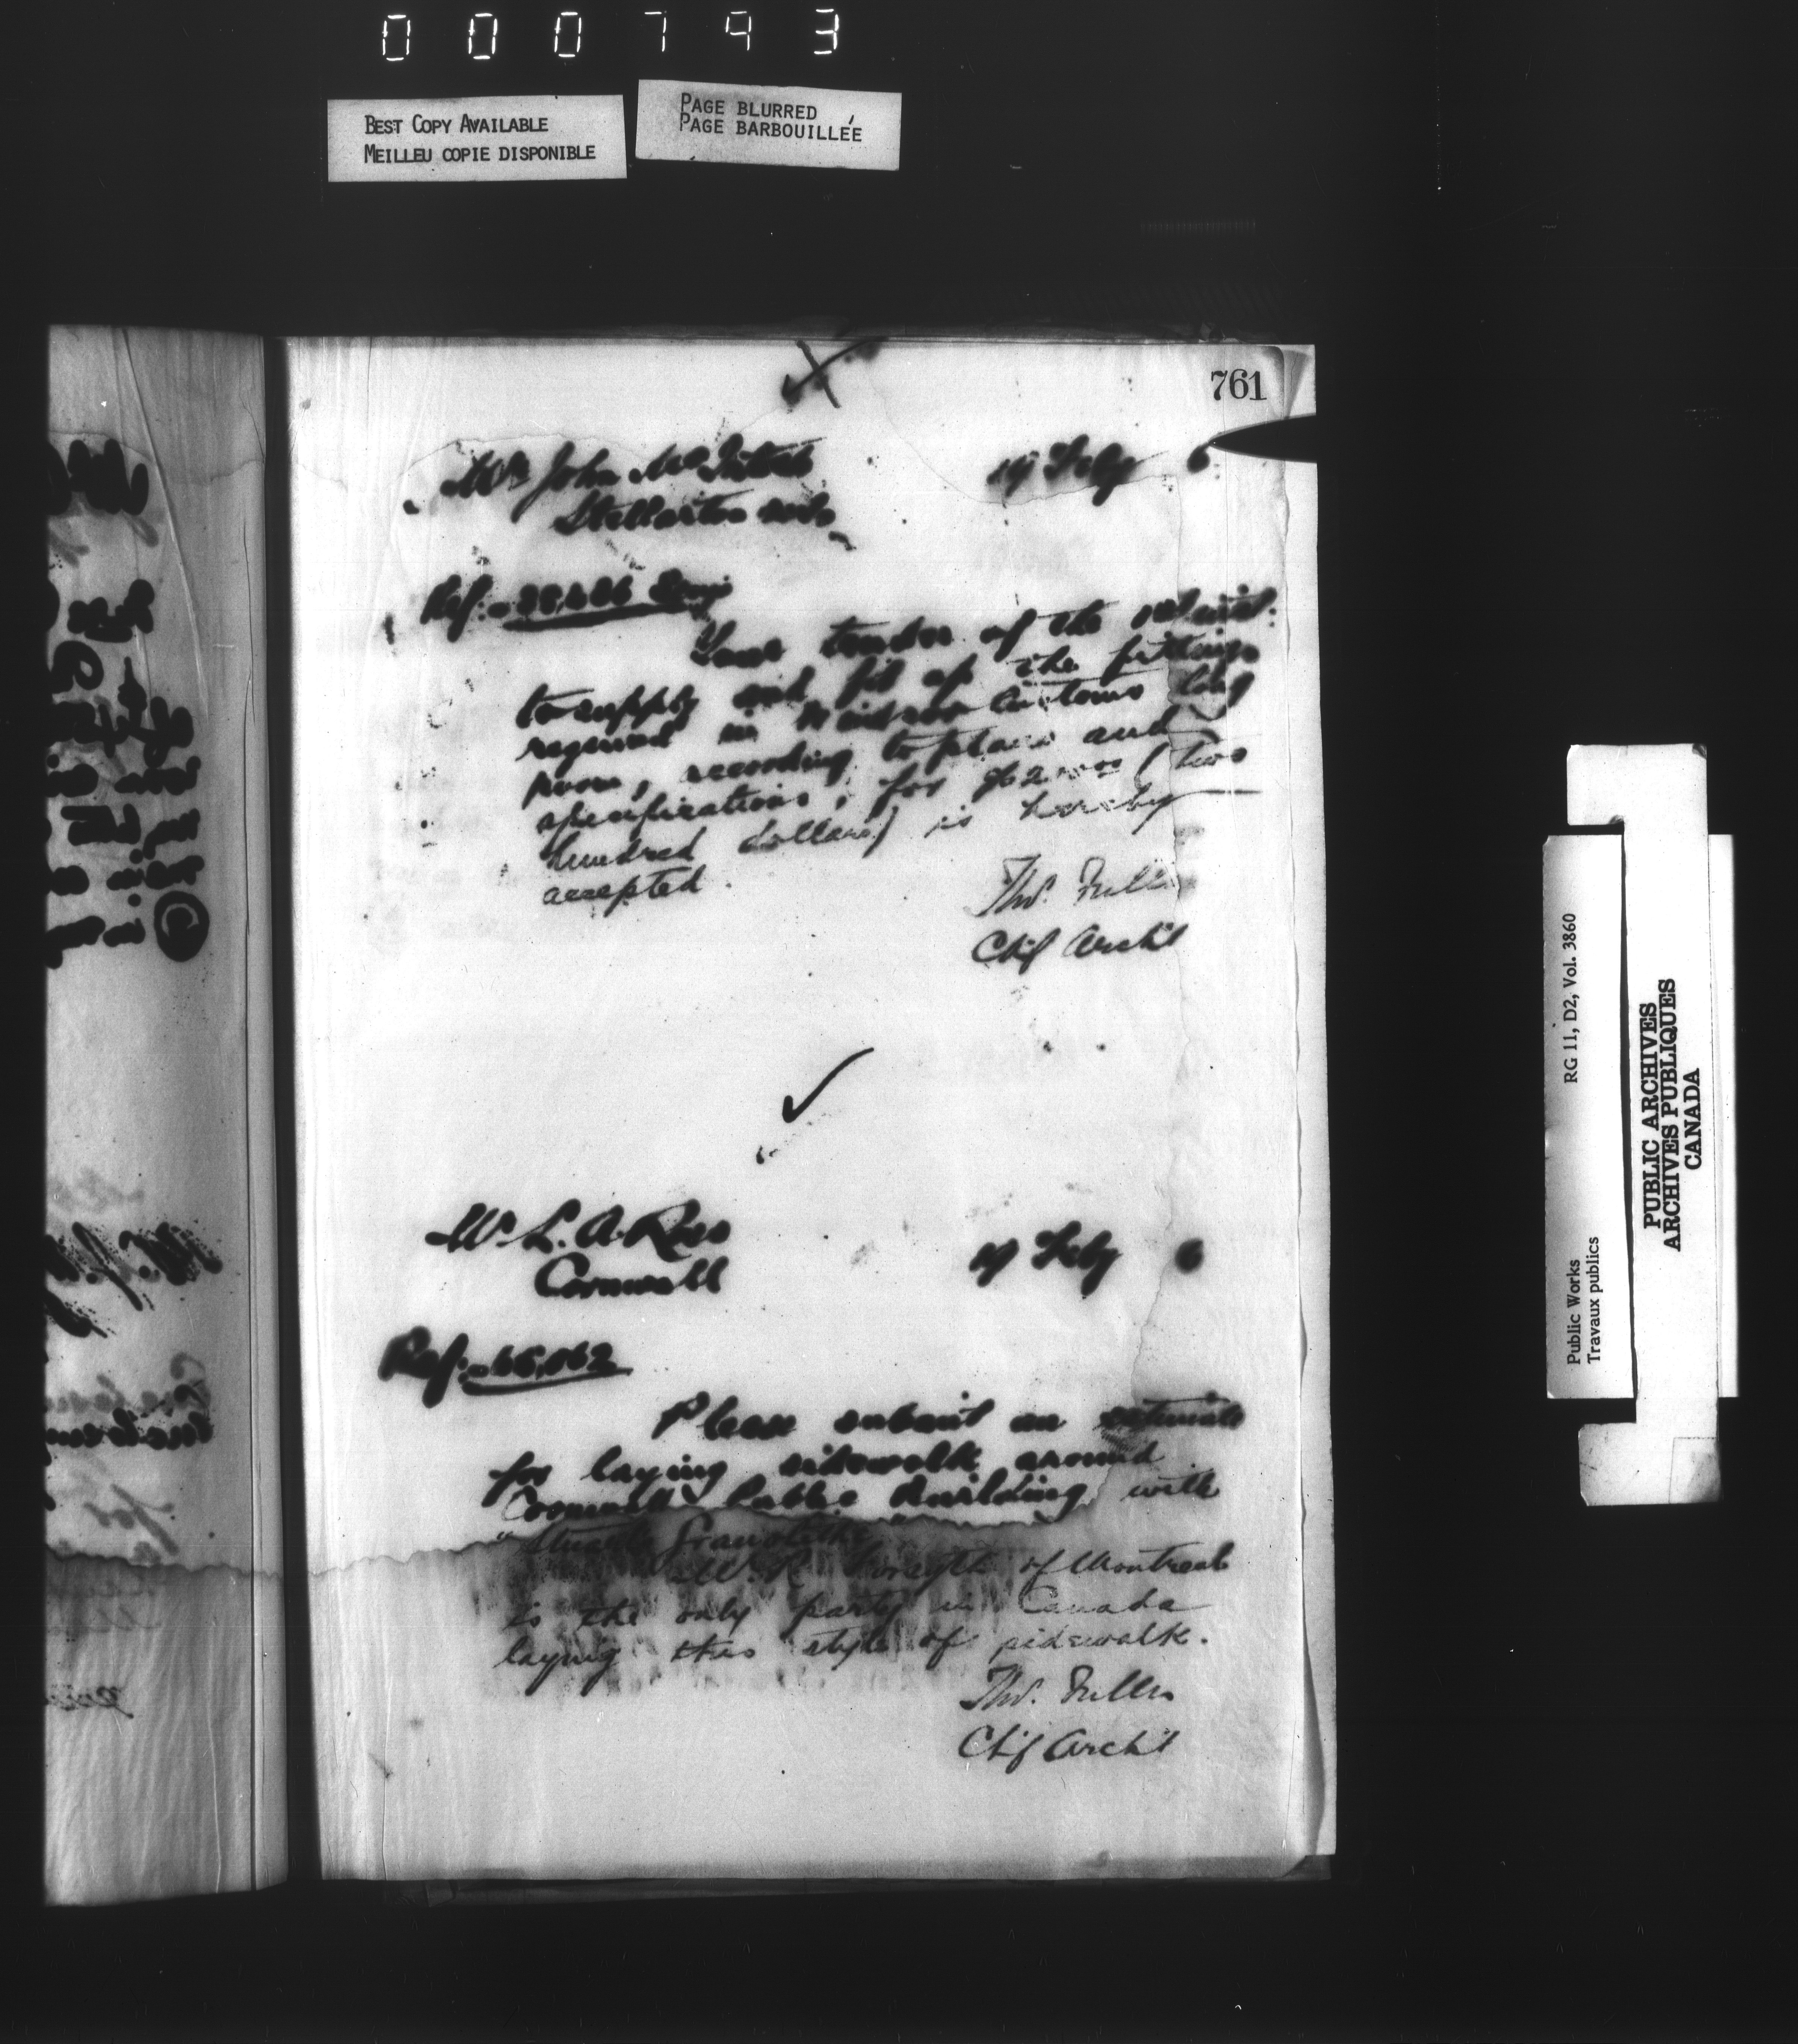 000793
BEST COPY AVAILABLE
MEILLEU COPIE DISPONIBLE
PAGE BLURRED
PAGE BARBOUILLÉE
761
Mr John McIntosh
19 Feby 6
Stellarton N.S.
Ref:-
Your tender of the
to supply and fit up the fittings
required in Customs Long
room, according to plans and
specifications, for $200.00 (two
hundred dollars) is hereby
accepted.
Thos. Fuller
Chf Archt
Mr L. A. Ross
19 Feby 6
Cornwall
Ref:-
Please submit an estimate
for laying sidewalk around
Cornwall Public Building with
"Stuart's Granolithic"
W. R. Forsyth of Montreal
is the only party in Canada
laying this style of sidewalk.
Thos. Fuller
Chf Archt
Public Works
Travaux publics
RG 11, D2, Vol. 3860
PUBLIC ARCHIVES
ARCHIVES PUBLIQUES
CANADA